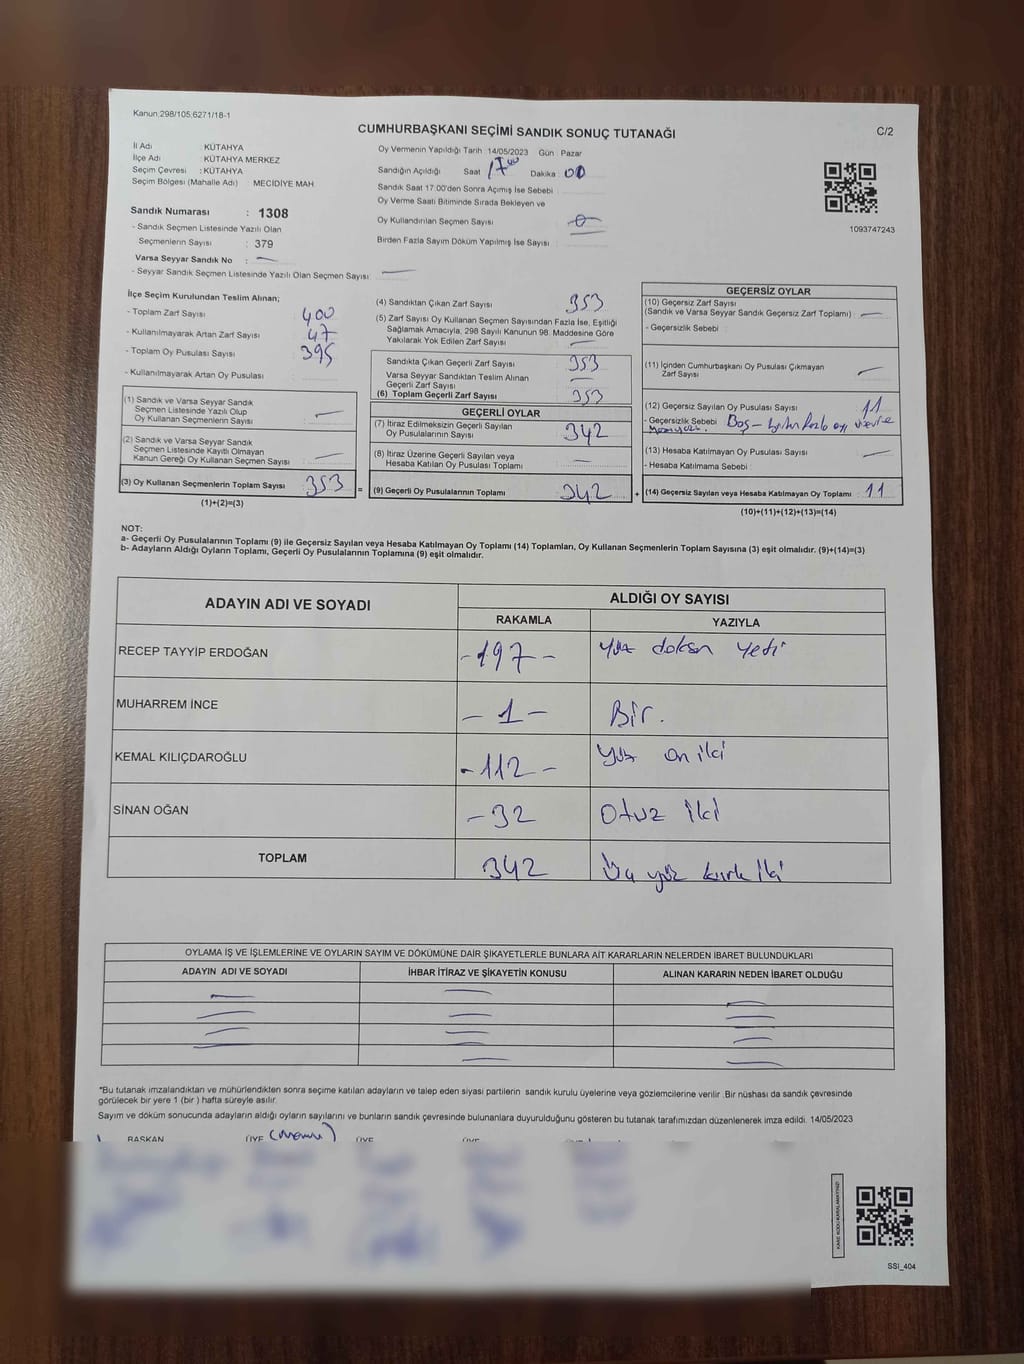 Kanun:298/105;6271/18-1
CUMHURBAŞKANI SEÇİMİ SANDIK SONUÇ TUTANAĞI
C/2
İl Adı : KÜTAHYA
İlçe Adı : KÜTAHYA MERKEZ
Seçim Çevresi : KÜTAHYA
Seçim Bölgesi (Mahalle Adı) MECİDİYE MAH.
Oy Vermenin Yapıldığı Tarih : 14/05/2023 Gün : Pazar
Sandığın Açıldığı Saat 17:00 Dakika : 00
Sandık Saat 17:00'den Sonra Açılmış İse Sebebi :
Oy Verme Saati Bitiminde Sırada Bekleyen ve
Oy Kullandırılan Seçmen Sayısı : 0
Birden Fazla Sayım Döküm Yapılmış İse Sayısı :
1093747243
Sandık Numarası : 1308
- Sandık Seçmen Listesinde Yazılı Olan
Seçmenlerin Sayısı : 379
Varsa Seyyar Sandık No : —
- Seyyar Sandık Seçmen Listesinde Yazılı Olan Seçmen Sayısı: —
İlçe Seçim Kurulundan Teslim Alınan;
- Toplam Zarf Sayısı 400
- Kullanılmayarak Artan Zarf Sayısı 47
- Toplam Oy Pusulası Sayısı 395
- Kullanılmayarak Artan Oy Pusulası
(1) Sandık ve Varsa Seyyar Sandık
Seçmen Listesinde Yazılı Olup
Oy Kullanan Seçmenlerin Sayısı : —
(2) Sandık ve Varsa Seyyar Sandık
Seçmen Listesinde Kayıtlı Olmayan
Kanun Gereği Oy Kullanan Seçmen Sayısı : —
(3) Oy Kullanan Seçmenlerin Toplam Sayısı : 353
(1)+(2)=(3)
(4) Sandıktan Çıkan Zarf Sayısı 353
(5) Zarf Sayısı Oy Kullanan Seçmen Sayısından Fazla İse, Eşitliği
Sağlamak Amacıyla, 298 Sayılı Kanunun 98. Maddesine Göre
Yakılarak Yok Edilen Zarf Sayısı —
Sandıkta Çıkan Geçerli Zarf Sayısı 353
Varsa Seyyar Sandıktan Teslim Alınan
Geçerli Zarf Sayısı —
(6) Toplam Geçerli Zarf Sayısı 353
GEÇERLİ OYLAR
(7) İtiraz Edilmeksizin Geçerli Sayılan
Oy Pusulalarının Sayısı 342
(8) İtiraz Üzerine Geçerli Sayılan veya
Hesaba Katılan Oy Pusulası Toplamı —
= (9) Geçerli Oy Pusulalarının Toplamı 342
GEÇERSİZ OYLAR
(10) Geçersiz Zarf Sayısı
(Sandık ve Varsa Seyyar Sandık Geçersiz Zarf Toplamı) : —
- Geçersizlik Sebebi :
(11) İçinden Cumhurbaşkanı Oy Pusulası Çıkmayan
Zarf Sayısı —
(12) Geçersiz Sayılan Oy Pusulası Sayısı 11
- Geçersizlik Sebebi : Boş -
(13) Hesaba Katılmayan Oy Pusulası Sayısı —
- Hesaba Katılmama Sebebi :
+ (14) Geçersiz Sayılan veya Hesaba Katılmayan Oy Toplamı : 11
(10)+(11)+(12)+(13)=(14)
NOT:
a- Geçerli Oy Pusulalarının Toplamı (9) ile Geçersiz Sayılan veya Hesaba Katılmayan Oy Toplamı (14) Toplamları, Oy Kullanan Seçmenlerin Toplam Sayısına (3) eşit olmalıdır. (9)+(14)=(3)
b- Adayların Aldığı Oyların Toplamı, Geçerli Oy Pusulalarının Toplamına (9) eşit olmalıdır.
ADAYIN ADI VE SOYADI
ALDIĞI OY SAYISI
RAKAMLA YAZIYLA
RECEP TAYYİP ERDOĞAN -197- Yüz doksan yedi
MUHARREM İNCE -1- Bir.
KEMAL KILIÇDAROĞLU -112- Yüz on iki
SİNAN OĞAN -32 Otuz iki
TOPLAM 342 Üç yüz kırk iki
OYLAMA İŞ VE İŞLEMLERİNE VE OYLARIN SAYIM VE DÖKÜMÜNE DAİR ŞİKAYETLERLE BUNLARA AİT KARARLARIN NELERDEN İBARET BULUNDUKLARI
ADAYIN ADI VE SOYADI İHBAR İTİRAZ VE ŞİKAYETİN KONUSU ALINAN KARARIN NEDEN İBARET OLDUĞU
*Bu tutanak imzalandıktan ve mühürlendikten sonra seçime katılan adayların ve talep eden siyasi partilerin sandık kurulu üyelerine veya gözlemcilerine verilir .Bir nüshası da sandık çevresinde
görülecek bir yere 1 (bir ) hafta süreyle asılır.
Sayım ve döküm sonucunda adayların aldığı oyların sayılarını ve bunların sandık çevresinde bulunanlara duyurulduğunu gösteren bu tutanak tarafımızdan düzenlenerek imza edildi. 14/05/2023
BAŞKAN ÜYE (memur) ÜYE ÜYE
KARE KODU KARALAMAYINIZ!
SSİ_404